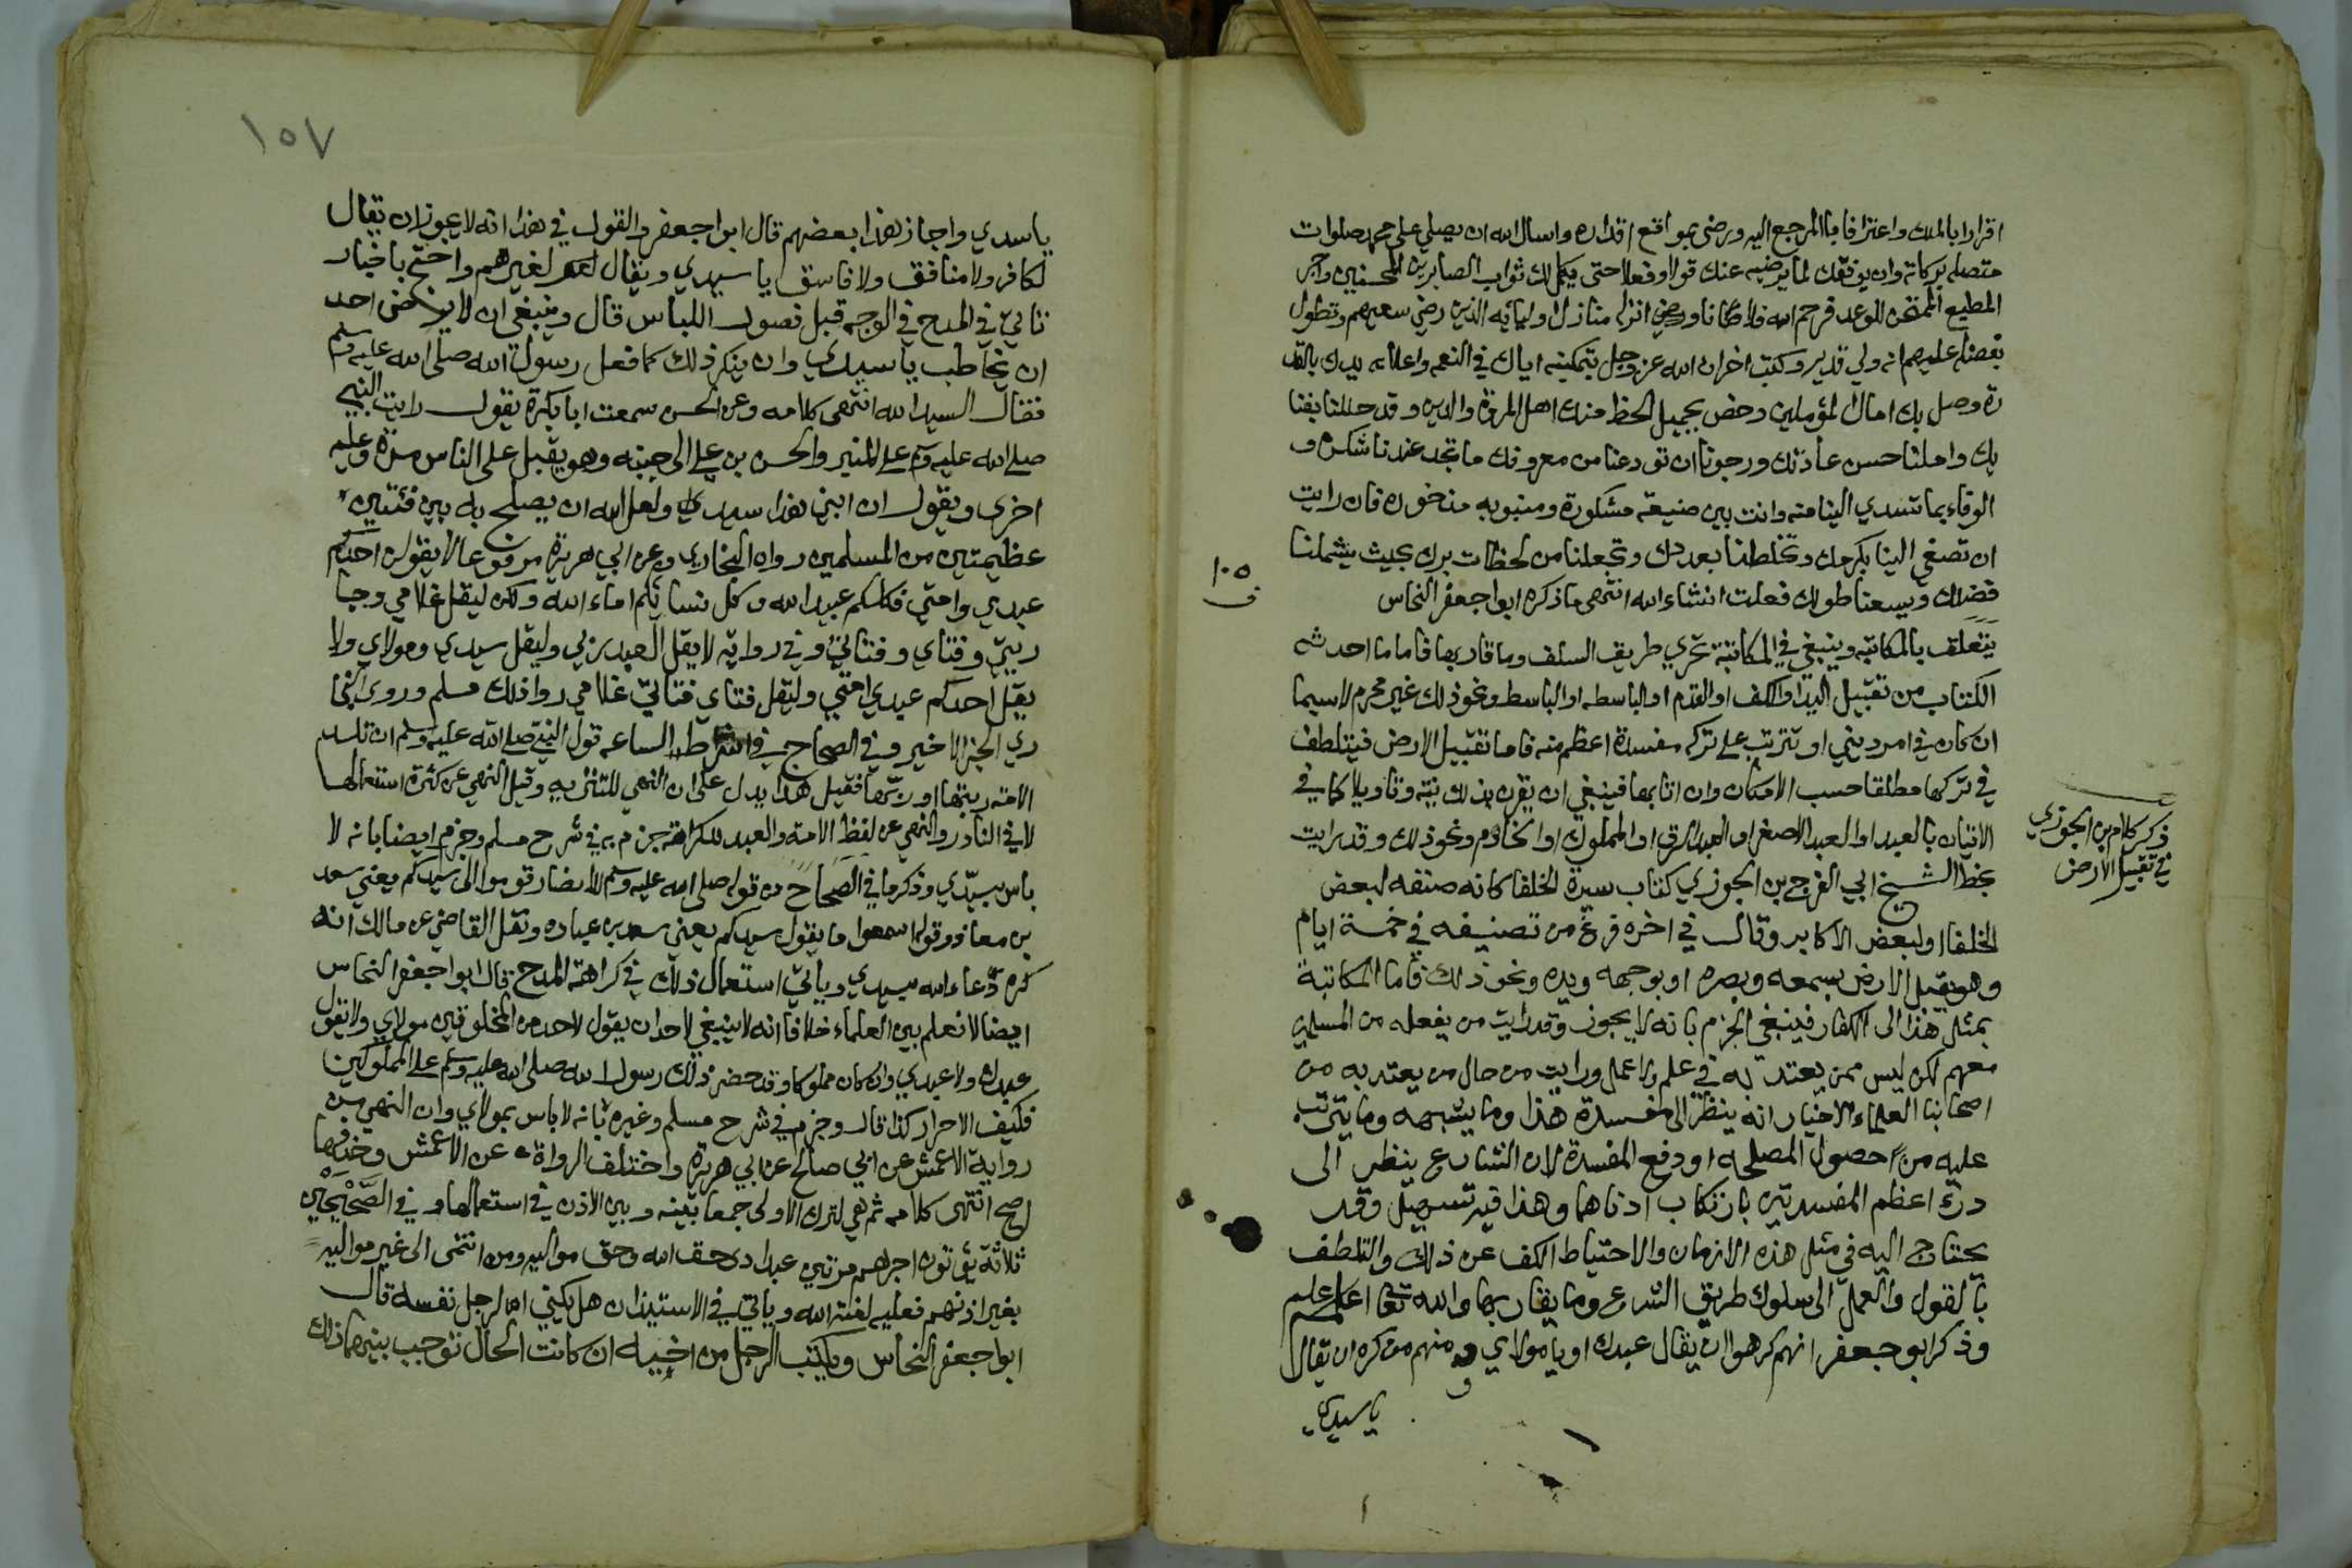 اقرارا بالملك واعترافا بالمرجع اليه ورضى بمواقع اقداره واسال الله ان يصلي على محمد صلوات
متصله بركاته وان يوفقك لما يرضيه عنك قولا وفعلا حتى يكمل لك ثواب الصابرين المحسنين واجر
المطيع الممتحن للوعد فرحم الله فلانا ورضي انزله منازل اوليائه الذين رضي سعيهم وتطول
بفضله عليهم انه ولي قدير وكتب اخر ان الله عز وجل بتمكينه اياك في النعمه واعلائه يدك بالقد
رة وصل بك امال المؤملين وخص بجميل الحظ منك اهل المروة والدين وقد حللنا بفنا
يك واملنا حسن عادتك ورجونا ان تودعنا من معروفك ما تجد عندنا شكره و
الوفاء بما تسدي الينا منه وانت بين صنيعة مشكورة ومثوبه مذخوره فان رايت
ان تصغي الينا بكرمك وتخلطنا بعددك وتجعلنا من لحظات برك بحيث يشملنا
فضلك ويسعنا طولك فعلت انشاء الله انتهى ما ذكره ابوا جعفر النحاس
يتعلق بالمكاتبه وينبغي في المكاتبة تحري طريق السلف وما قاربها فاما ما احدثه
الكتاب من تقبيل اليد او الكف او القدم او الباسطه او الباسط ونحو ذلك غير محرم لاسيما
ان كان في امر ديني او تترتب على تركه مفسدة اعظم منه فاما تقبيل الارض فيتلطف
في تركها مطلقا حسب الامكان وان اتا بها فينبغي ان يقرن بذلك نيته وتاويلا كما في
الاتيان بالعبد او العبد الاصغر او العبد الرق او المملوك او الخادم ونحو ذلك وقد رايت
بخط الشيخ ابي الفرج بن الجوزي كتاب سيرة الخلفا كانه صنفه لبعض
الخلفا او لبعض الاكابر وقال في اخره فرغ من تصنيفه في خمسة ايام
وهو يقبل الارض بسمعه وبصره او بوجهه ويده ونحو ذلك فاما المكاتبة
بمثل هذا الى الكفار فينبغي الجزم بانه لا يجوز وقد رايت من يفعله من المسلمين
معهم لكن ليس ممن يعتد به في علم ولا عمل ورايت من حال من يعتد به من
اصحابنا العلماء الاخيار انه ينظر الى مفسدة هذا وما يشبهه وما يترتب
عليه من حصول المصلحه او دفع المفسدة لان الشارع ينظر الى
درء اعظم المفسدتين بارتكاب ادناهما وهذا فيه تسهيل وقد
يحتاج اليه في مثل هذه الازمان والاحتياط الكف عن ذلك والتلطف
بالقول والعمل الى سلوك طريق الشرع وما يقاربها والله تعا اعلم
وذكر ابو جعفر انهم كرهوا ان يقال عبدك او يا مولاي ومنهم من كره ان يقال
يا سيدي
ذكر كلام بن الجوزي
في تقبيل الارض
١٠٥
١٥٧
يا سيدي واجاز هذا بعضهم قال ابوا جعفر والقول في هذا انه لا يجوز ان يقال
لكافر ولا منافق ولا فاسق يا سيدي ويقال لغيرهم واحتج باخبار
تاتي في المدح في الوجه قبل فصول اللباس قال وينبغي ان لا يرضى احد
ان يخاطب يا سيدي وان ينكر ذلك كما فعل رسول الله صلى الله عليه وسلم
فقال السيد الله انتهى كلامه وعن الحسن سمعت ابا بكرة يقول رايت النبي
صلى الله عليه وسلم على المنبر والحسن بن علي الى جنبه وهو يقبل على الناس مرة وعليه
اخرى ويقول ان ابني هذا سيد ولعل الله ان يصلح به بين فئتين
عظيمتين من المسلمين رواه البخاري وعن ابي هريرة مرفوعا لا يقولن احدكم
عبدي وامتي فكلكم عبيد الله وكل نسائكم اماء الله ولكن ليقل غلامي وجا
ريتي وفتاي وفتاتي وفي رواية لا يقل العبد ربي وليقل سيدي ومولاي ولا
يقل احدكم عبدي امتي وليقل فتاي فتاتي غلامي روا ذلك مسلم وروى البخا
ري الخبر الاخير وفي الصحاح في اشراط الساعه قول النبي صلى الله عليه وسلم ان تلد
الامة ربتها او ربها فقيل هذا يدل على ان النهي للتنزيه وقيل النهي عن كثرة استعمالها
لا في النادر والنهي عن لفظ الامة والعبد للكراهة جزم به في شرح مسلم وجزم ايضا بانه لا
باس بسيدي وذكر ما في الصحاح من قوله صلى الله عليه وسلم للانصار قوموا الى سيدكم يعني سعد
بن معاذ وقوله اسمعوا ما يقول سيدكم يعني سعد بن عباده ونقل القاضي عن مالك انه
كره دعاء الله بسيدي وياتي استعمال ذلك في كراهة المدح قال ابوا جعفر النحاس
ايضا لا نعلم بين العلماء خلافا انه لا ينبغي لاحد ان يقول لاحد من المخلوقين مولاي ولا تقول
عبدك ولا عبدي وان كان مملوكا وقد حضر ذلك رسول الله صلى الله عليه وسلم على المملوكين
فكيف الاحرار كذا قال وجزم في شرح مسلم وغيره بانه لا باس بمولاي وان النهي من
رواية الاعمش عن ابي صالح عن ابي هريرة واختلف الرواة عن الاعمش وحذفها
اصح انتهى كلامه ثم هي لترك الاولى جمعا بينه وبين الاذن في استعمالها وفي الصحيحين
ثلاثة يؤتون اجرهم مرتين عبد ادى حق الله وحق مواليه ومن انتمى الى غير مواليه
بغير اذنهم فعليه لعنة الله وياتي في الاستيذان هل يكني الرجل نفسه قال
ابوا جعفر النحاس ويكتب الرجل من اخيه ان كانت الحال توجب بينهما ذلك